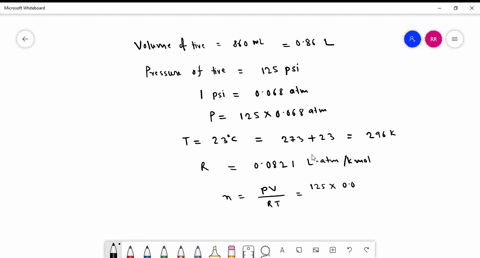 Microsoft Whiteboard
RR
Volume of tire = 860 mL = 0.86 L
Pressure of tire = 125 psi
1 psi = 0.068 atm
P = 125 X 0.068 atm
T = 23°C = 273 + 23 = 296 K
R = 0.0821 L-atm/K mol
n = PV / RT = 125 X 0.0